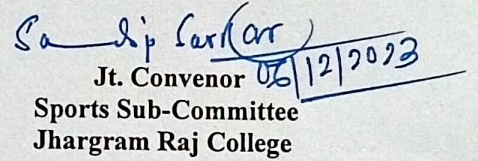 Sandip Sarkar
06/12/2023
Jt. Convenor
Sports Sub-Committee
Jhargram Raj College